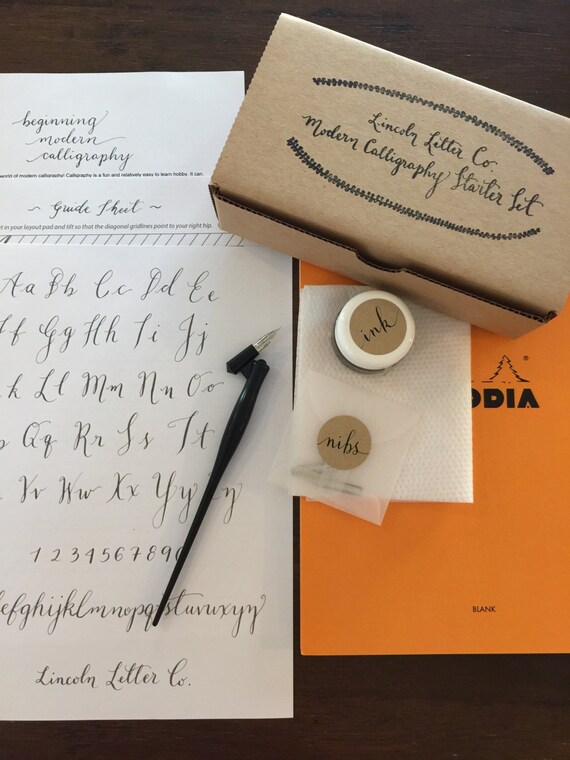 beginning
modern
calligraphy
world of modern calligraphy! Calligraphy is a fun and relatively easy to learn hobby. It can
~ Guide Sheet ~
et in your layout pad and tilt so that the diagonal gridlines point to your right hip.
Aa Bb Cc Dd Ee
Ff Gg Hh Ii Jj
k Ll Mm Nn Oo
p Qq Rr Ss Tt
Vv Ww Xx Yy
1 2 3 4 5 6 7 8 9 0
efghijklmnopqrstuvwxyz
Lincoln Letter Co.
Lincoln Letter Co.
Modern Calligraphy Starter Set
ink
nibs
ODIA
BLANK